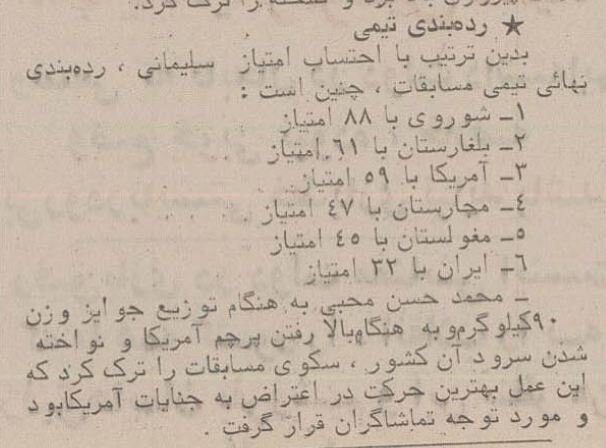 را ترک کرد.
★ رده‌بندی تیمی
بدین ترتیب با احتساب امتیاز سلیمانی ، رده‌بندی
نهائی تیمی مسابقات ، چنین است :
۱ـ شوروی با ۸۸ امتیاز
۲ـ بلغارستان با ۶۱ امتیاز
۳ـ آمریکا با ۵۹ امتیاز
۴ـ مجارستان با ۴۷ امتیاز
۵ـ مغولستان با ۴۵ امتیاز
۶ـ ایران با ۳۲ امتیاز
ـ محمد حسن محبی به هنگام توزیع جوایز وزن
۹۰کیلوگرم‌و به هنگام‌بالا رفتن پرچم آمریکا و نواخته
شدن سرود آن کشور ، سکوی مسابقات را ترک کرد که
این عمل بهترین حرکت در اعتراض به جنایات آمریکابود
و مورد توجه تماشاگران قرار گرفت .